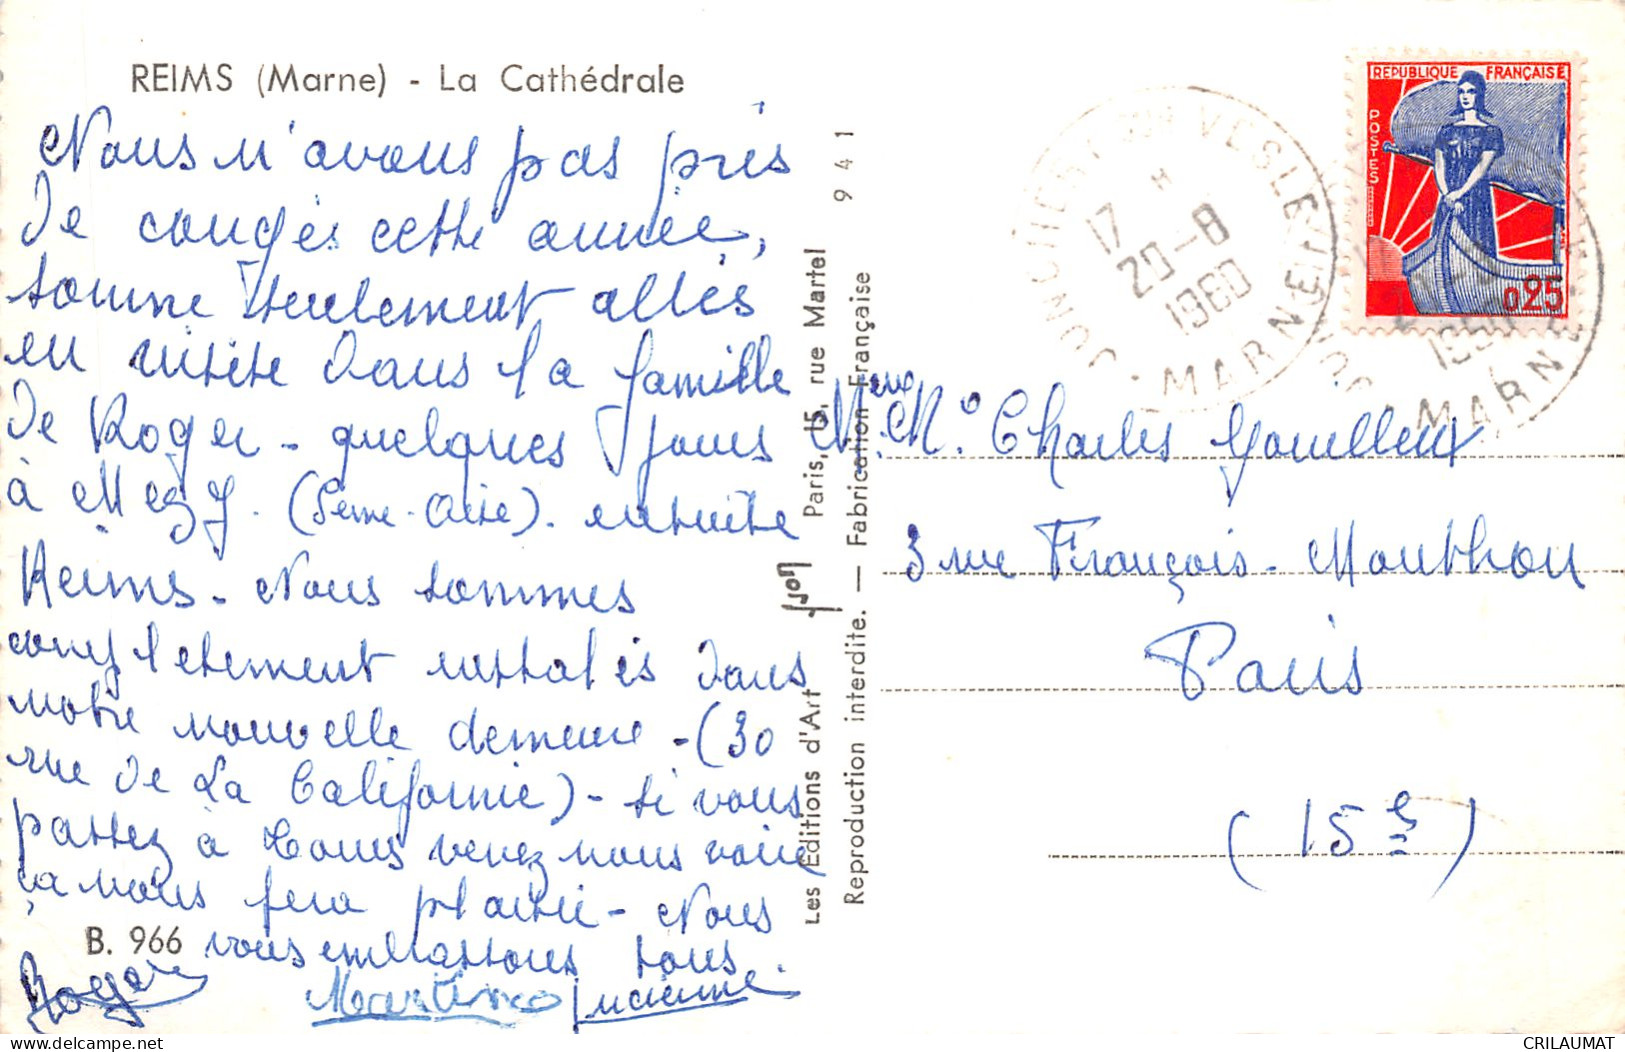 REIMS (Marne) - La Cathédrale
Nous n'avons pas pris
de congés cette année,
somme seulement allés
en visite dans la famille
de Roger - quelques jours
à Mézy. (Seine-Oise). ensuite
Reims - Nous sommes
complètement installés dans
notre nouvelle demeure - (30
rue de La Californie) - si vous
passez à Tours venez nous voir
ça nous fera plaisir - Nous
vous embrassons tous
Roger
Lucienne
B. 966
Les Éditions d'Art Yvon Paris, 15, rue Martel 941
Reproduction interdite. — Fabrication Française
JONCHERY SUR VESLE
17 H
20-8
1960
MARNE
REPUBLIQUE FRANÇAISE
POSTES
0,25
1960
MARNE
Charles
3 rue François-Mouthon
Paris
(15e)
hautetfort.com
CRILAUMAT